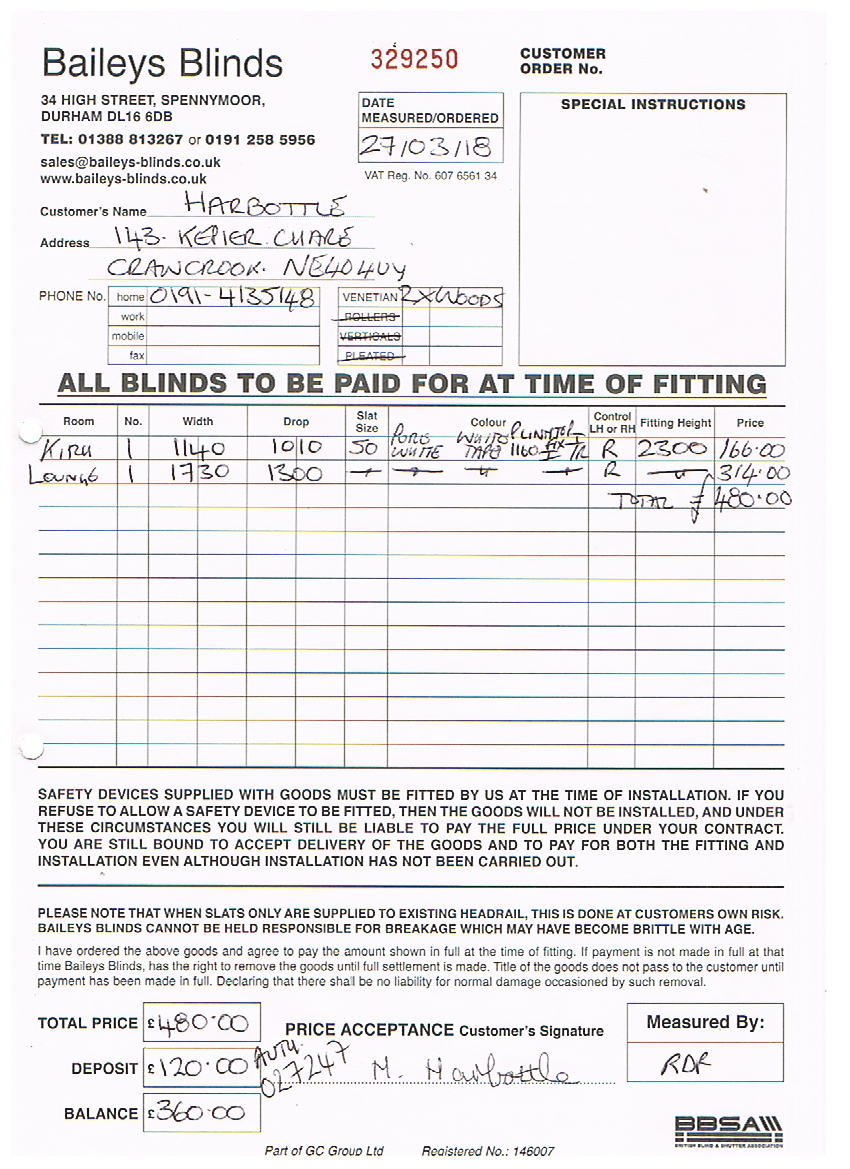 Baileys Blinds
329250
CUSTOMER
ORDER No.
34 HIGH STREET, SPENNYMOOR,
DURHAM DL16 6DB
TEL: 01388 813267 or 0191 258 5956
sales@baileys-blinds.co.uk
www.baileys-blinds.co.uk
DATE
MEASURED/ORDERED
27/03/18
VAT Reg. No. 607 6561 34
SPECIAL INSTRUCTIONS
Customer's Name HARBOTTLE
Address 143. KEPIER CHARE
CRAWCROOK. NE40 4UY
PHONE No. home 0191-4135148
work
mobile
fax
VENETIAN 2 X WOODS
ROLLERS
VERTICALS
PLEATED
ALL BLINDS TO BE PAID FOR AT TIME OF FITTING
Room No. Width Drop Slat Size Colour Control LH or RH Fitting Height Price
1 1140 1010 50 PURE WHITE WHITE TAPE 1160 R 2300 166.00
LOUNGE 1 1730 1300 R 314.00
TOTAL £ 480.00
SAFETY DEVICES SUPPLIED WITH GOODS MUST BE FITTED BY US AT THE TIME OF INSTALLATION. IF YOU
REFUSE TO ALLOW A SAFETY DEVICE TO BE FITTED, THEN THE GOODS WILL NOT BE INSTALLED, AND UNDER
THESE CIRCUMSTANCES YOU WILL STILL BE LIABLE TO PAY THE FULL PRICE UNDER YOUR CONTRACT.
YOU ARE STILL BOUND TO ACCEPT DELIVERY OF THE GOODS AND TO PAY FOR BOTH THE FITTING AND
INSTALLATION EVEN ALTHOUGH INSTALLATION HAS NOT BEEN CARRIED OUT.
PLEASE NOTE THAT WHEN SLATS ONLY ARE SUPPLIED TO EXISTING HEADRAIL, THIS IS DONE AT CUSTOMERS OWN RISK.
BAILEYS BLINDS CANNOT BE HELD RESPONSIBLE FOR BREAKAGE WHICH MAY HAVE BECOME BRITTLE WITH AGE.
I have ordered the above goods and agree to pay the amount shown in full at the time of fitting. If payment is not made in full at that
time Baileys Blinds, has the right to remove the goods until full settlement is made. Title of the goods does not pass to the customer until
payment has been made in full. Declaring that there shall be no liability for normal damage occasioned by such removal.
TOTAL PRICE £480.00
DEPOSIT £120.00
BALANCE £360.00
AUTH.
027247
PRICE ACCEPTANCE Customer's Signature
M. Harbottle
Measured By:
RDR
BBSA
BRITISH BLIND & SHUTTER ASSOCIATION
Part of GC Group Ltd Registered No.: 146007